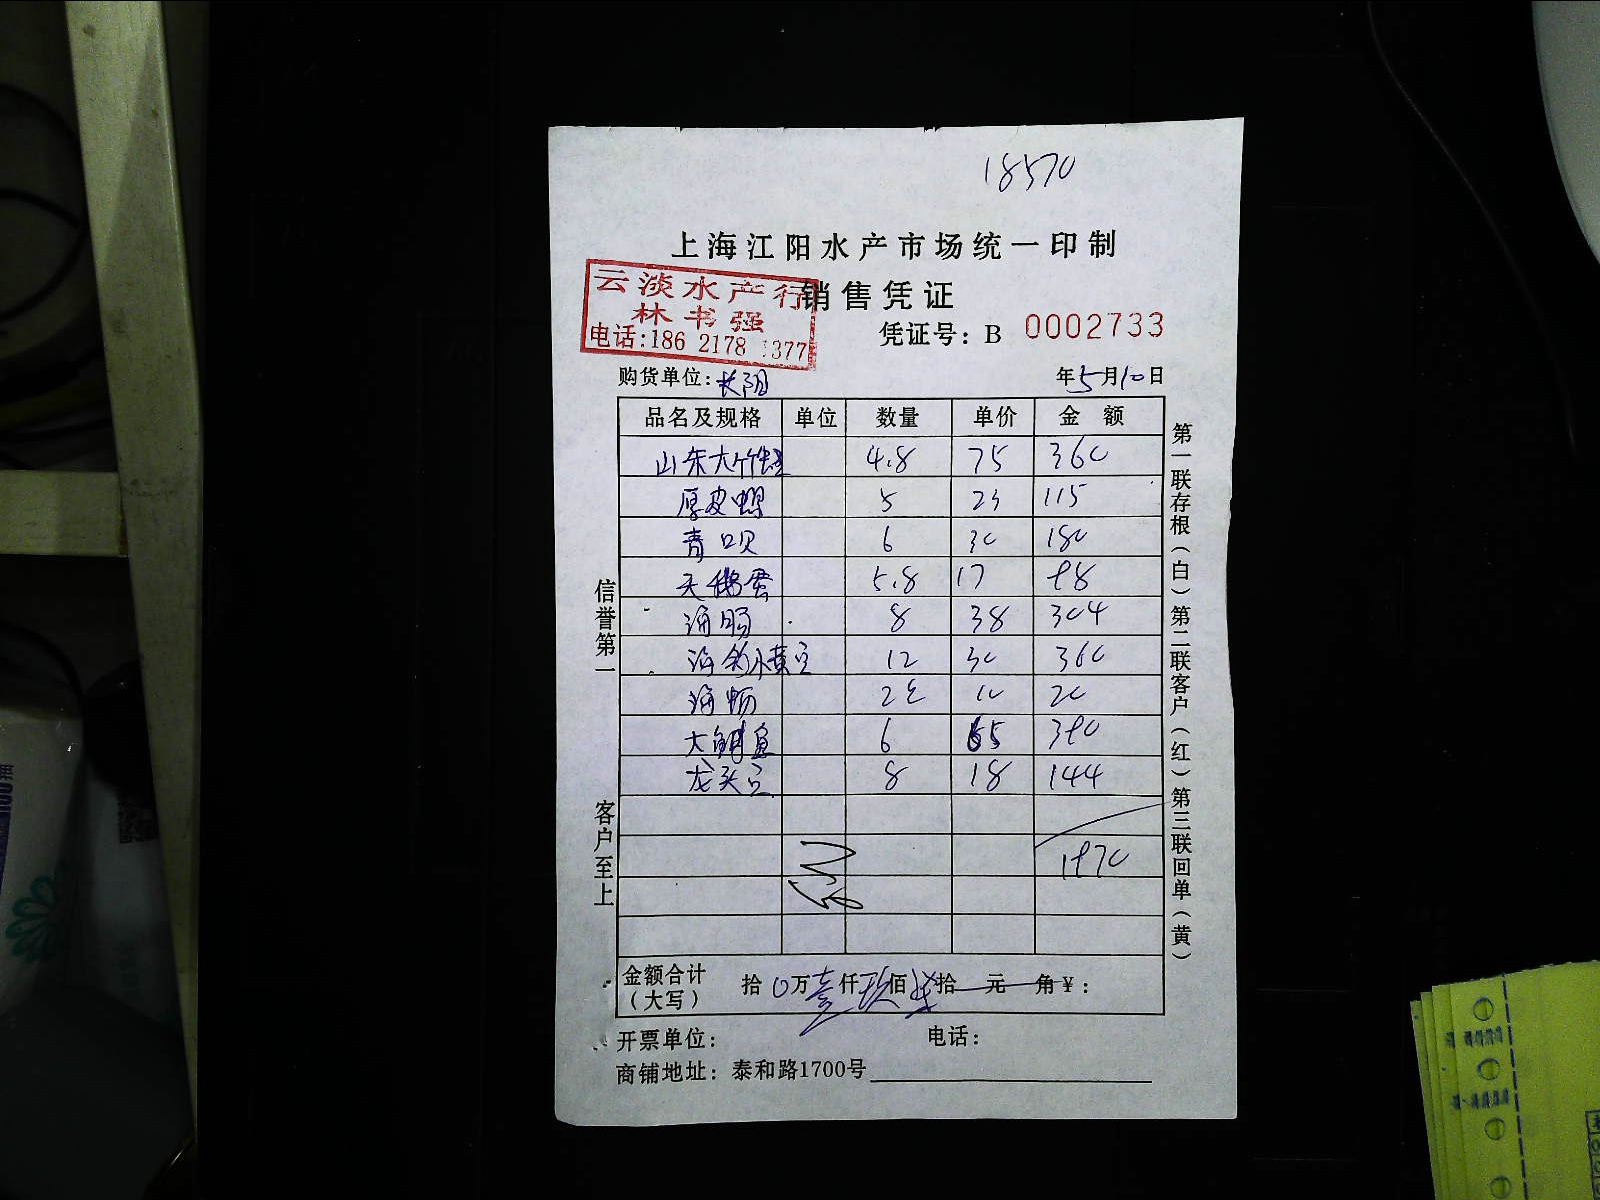 18570
上海江阳水产市场统一印制
销售凭证
云淡水产行
林书强
电话:186 2178 1377
凭证号: B 0002733
购货单位: 长阳 年5月10日
品名及规格 单位 数量 单价 金额
山东大竹蛏 4.8 75 360
厚皮螺 5 23 115
青口贝 6 30 180
天鹅蛋 5.8 17 98
海肠 8 38 304
12 30 360
10 20
6 65 390
龙头 8 18 144
1970
金额合计(大写) 拾0万壹仟玖佰柒拾元角¥:
开票单位: 电话:
商铺地址: 泰和路1700号
信誉第一 客户至上
第一联存根(白)第二联客户(红)第三联回单(黄)